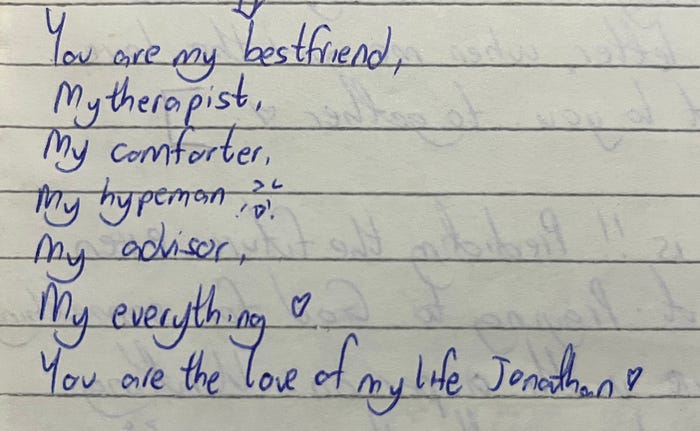 You are my bestfriend,
My therapist,
My comforter,
My hypeman
My advisor,
My everything ♡
You are the love of my life Jonathan ♡